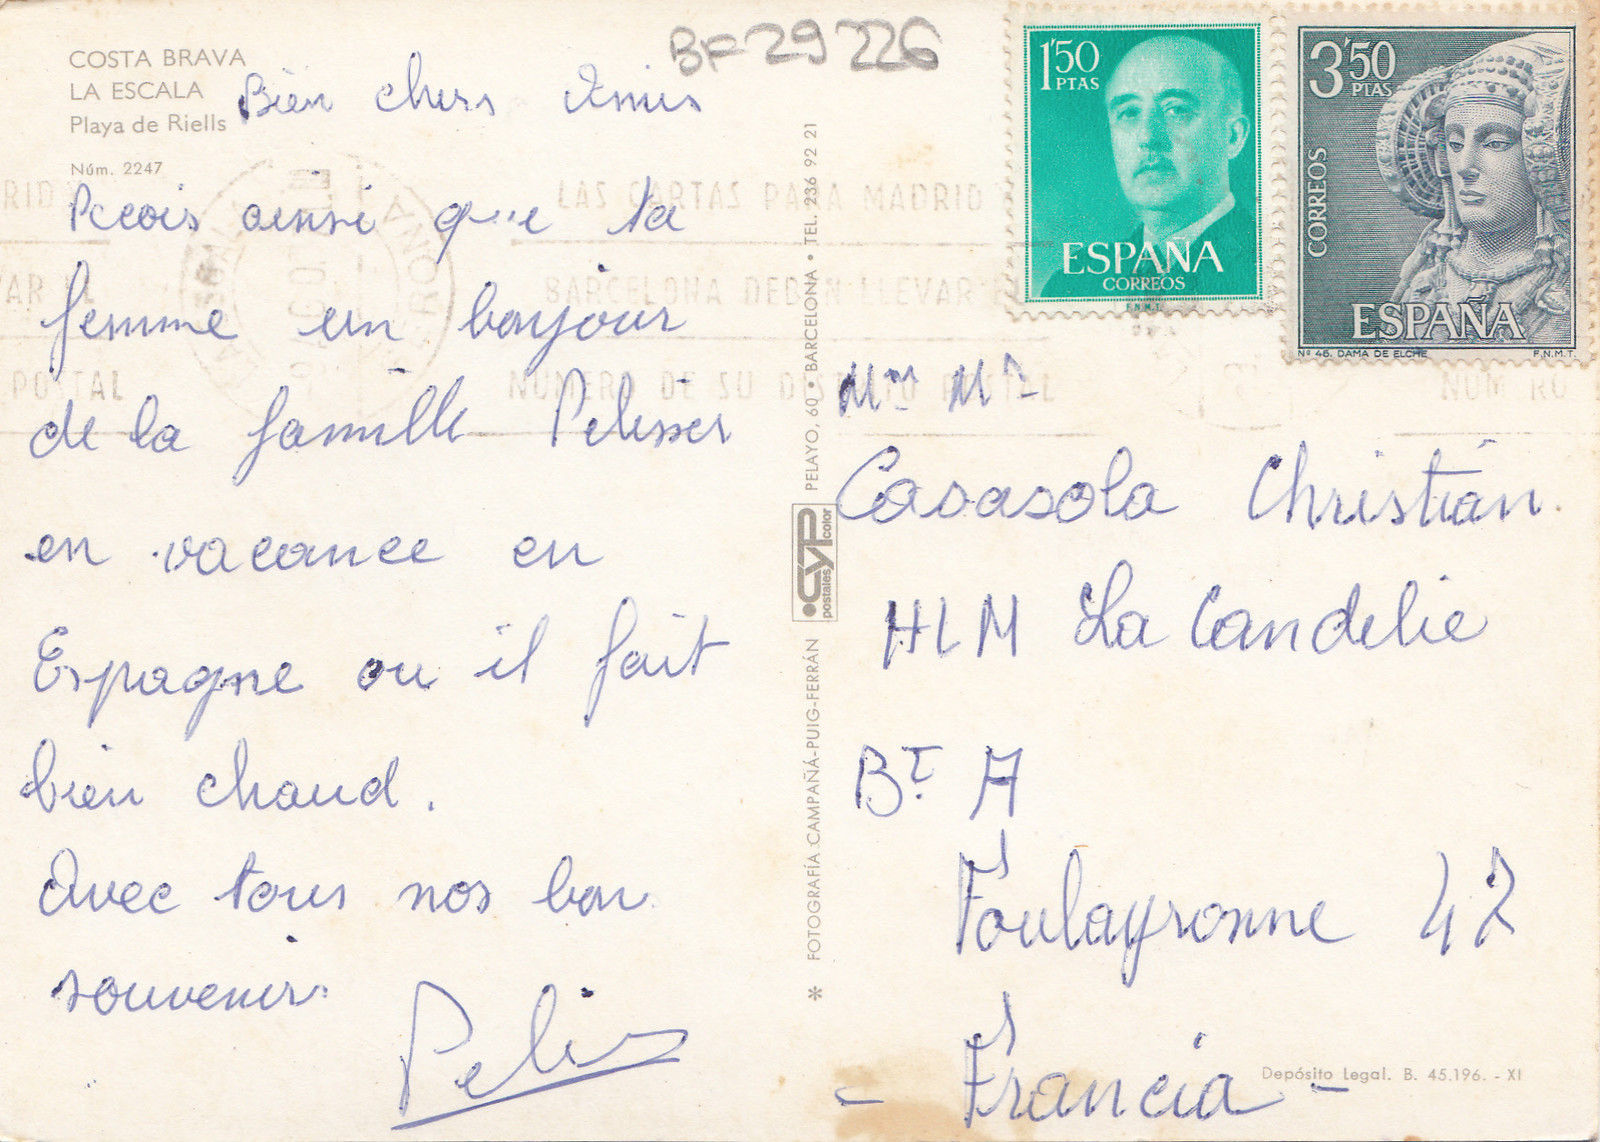 COSTA BRAVA
LA ESCALA
Playa de Riells
Núm. 2247
BF 29 226
Bien chers Amis
Recois ainsi que ta
femme un bonjour
de la famille Pelisser
en vacance en
Espagne ou il fait
bien chaud.
Avec tous nos bon
souvenirs
FOTOGRAFÍA CAMPAÑÁ-PUIG-FERRÁN
postales color
CYP
PELAYO, 60 • BARCELONA • TEL. 236 92 21
1'50
PTAS
ESPAÑA
CORREOS
F.N.M.T.
3'50
PTAS
CORREOS
ESPAÑA
Nº 46. DAMA DE ELCHE
F.N.M.T.
LAS CARTAS PARA MADRID
BARCELONA DEBEN LLEVAR EL
NUMERO DE SU DISTRITO POSTAL
Casasola Christian.
HLM La Candelie
Bt. A
Foulayronne 47
- Francia -
Depósito Legal. B. 45.196. - XI